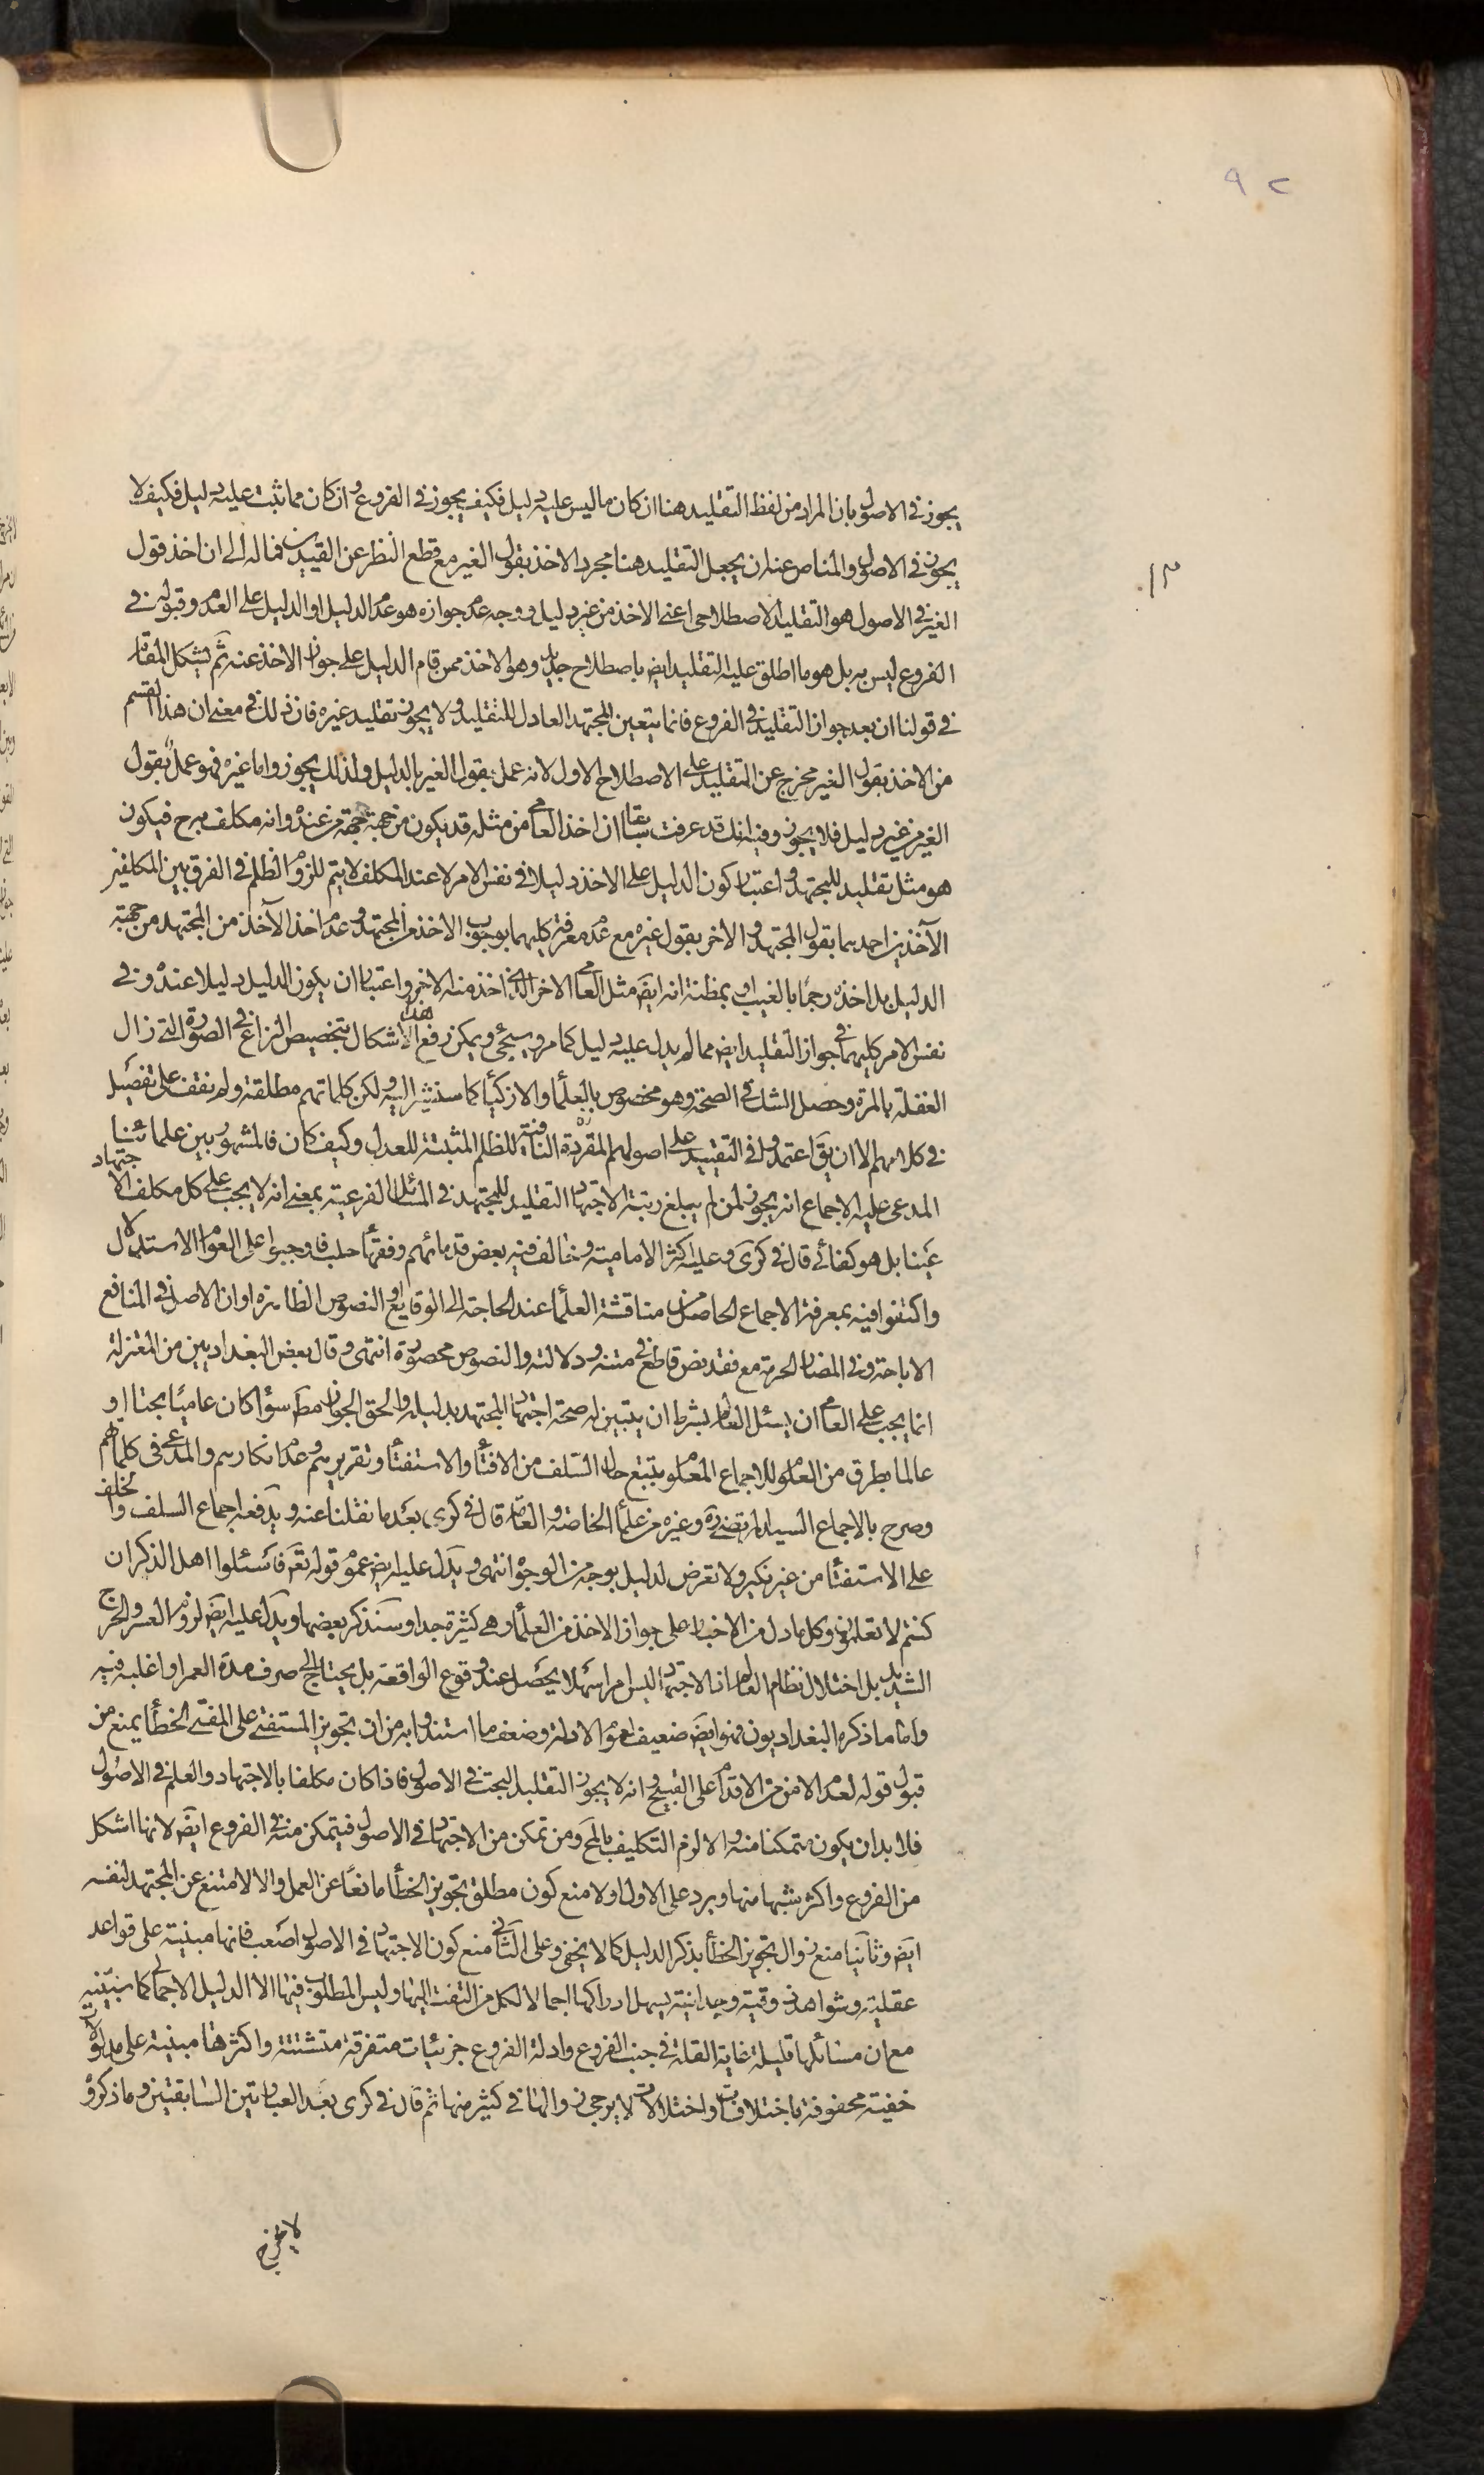 ٩٢
١٣
يجوز في الاصول بان المراد من لفظ التقليد هنا ان كان ما ليس عليه دليل فكيف يجوز في الفروع وان كان مما ثبت عليه دليل فكيف لا
يجوز في الاصول والمناص عنه ان يجعل التقليد هنا مجرد الاخذ بقول الغير مع قطع النظر عن القيدين فماله الى ان اخذ قول
الغير في الاصول هو التقليد الاصطلاحى اعنى الاخذ من غير دليل ووجه عدم جوازه هو عدم الدليل او الدليل على العدم وقبوله في
الفروع ليس به بل هو ما اطلق عليه التقليد ايض باصطلاح جديد وهو الاخذ ممن قام الدليل على جواز الاخذ عنه ثم يشكل المقام
في قولنا ان بعد جواز التقليد في الفروع فانما يتعين المجتهد العادل للتقليد ولا يجوز تقليد غيره فان ذلك في معنى ان هذا القسم
من الاخذ بقول الغير مخرج عن التقليد على الاصطلاح الاول لانه عمل بقول الغير بالدليل ولذلك يجوز واما غيره فهو عمل بقول
الغير من غير دليل فلا يجوز وفيه انك قد عرفت سابقا ان اخذ العامى من مثله قد يكون من جهة حجة من عنده وانه مكلف به ح فيكون
هو مثل تقليد للمجتهد واعتبار كون الدليل على الاخذ دليلا في نفس الامر لا عند المكلف لا يتم للزوم الظلم في الفرق بين المكلفين
الآخذين احدهما بقول المجتهد والاخر بقول غيره مع عدم معرفة كليهما بوجوب الاخذ من المجتهد وعدم اخذ الآخذ من المجتهد من جهة
الدليل بل اخذه رجما بالغيب او بمظنة انه ايضَ مثل العامى الاخر الذى اخذ منه الاخر واعتبار ان يكون الدليل دليلا عنده وفي
نفس الامر كليهما في جواز التقليد ايض مما لم يدل عليه دليل كما مر وسيجئ ويمكن رفع هذا الاشكال بتخصيص النزاع في الصورة التى زال
الغفلة بالمرة وحصل الشك في الصحة وهو مخصوص بالعلماء والازكياء كما سنشير اليه ولكن كلماتهم مطلقة ولم نقف على تفصيل
في كلامهم الا ان يقَ اعتمدوا في التقييد على اصولهم المقررة النافية للظلم المثبتة للعدل وكيف كان فالمشهور بين علمائنا
المدعى عليه الاجماع انه يجوز لمن لم يبلغ رتبة الاجتهاد التقليد للمجتهد في المسائل الفرعية بمعنى انه لا يجب على كل مكلف الاجتهاد
عينا بل هو كفائى قال في كرى وعليه اكثر الامامية وخالف فيه بعض قدمائهم وفقهاء حلب فاوجبوا على العوام الاستدلال
واكتفوا فيه بمعرفة الاجماع الحاصل من مناقشة العلماء عند الحاجة الى الوقايع او النصوص الظاهرة او ان الاصل في المنافع
الاباحة وفي المضار الحرمة مع فقد نص قاطع في متنه ودلالته والنصوص محصورة انتهى وقال بعض البغداديين من المعتزلة
انما يجب على العامى ان يسئل العالم بشرط ان يتبين له صحة اجتهاد المجتهد بدليله والحق الجواز مط سواء كان عاميا بحتا او
عالما بطرق من العلوم للاجماع المعلوم بتتبع حال السلف من الافتاء والاستفتاء وتقريرهم وعدم انكارهم والمدعى في كلماتهم
وصرح بالاجماع السيد المرتضى ره وغيره من علماء الخاصة والعامة قال في كرى بعد ما نقلنا عنه ويدفعه اجماع السلف والخلف
على الاستفتاء من غير نكير ولا تعرض لدليل بوجه من الوجوه انتهى ويدل عليه ايض عموم قوله تعَ فاسئلوا اهل الذكر ان
كنتم لا تعلمون وكل ما دل من الاخبار على جواز الاخذ من العلماء وهى كثيرة جدا وسنذكر بعضها ويدل عليه ايضَ لزوم العسر والحرج
الشديد بل اختلال نظام العالم اذ الاجتهاد ليس امرا سهلا يحصل عند وقوع الواقعة بل يحتاج الى صرف مدة العمر او اغلبه فيه
واما ما ذكره البغداديون فهو ايضَ ضعيف لعموم الادلة وضعف ما استندوا به من ان تجويز المستفتى على المفتى الخطأ يمنع من
قبول قوله لعدم الامن من الاقدام على القبيح وانه لا يجوز التقليد البحت في الاصول فاذا كان مكلفا بالاجتهاد والعلم في الاصول
فلا بد ان يكون متمكنا منه والا لزم التكليف بالمح ومن تمكن من الاجتهاد في الاصول فيتمكن منه في الفروع ايضَ لانها اشكل
من الفروع واكثر شبها منها ويرد على الاول اولا منع كون مطلق تجويز الخطأ مانعا عن العمل والا لامتنع عن المجتهد لنفسه
ايضَ وثانيا منع زوال تجويز الخطأ بذكر الدليل كما لا يخفى وعلى الثانى منع كون الاجتهاد في الاصول اصعب فانها مبنية على قواعد
عقلية وشواهد ذوقية وجدانية يسهل ادراكها اجمالا لكل من التفت اليها وليس المطلوب فيها الا الدليل الاجمالى كما سنبينه
مع ان مسائلها قليلة غاية القلة في جنب الفروع وادلة الفروع جزئيات متفرقة متشتتة واكثرها مبنية على مدلولات
خفية محفوفة باختلافات واختلالات لا يرجى زوالها في كثير منها ثم قال في كرى بعد العبارتين السابقتين وما ذكروه
لا يخرج